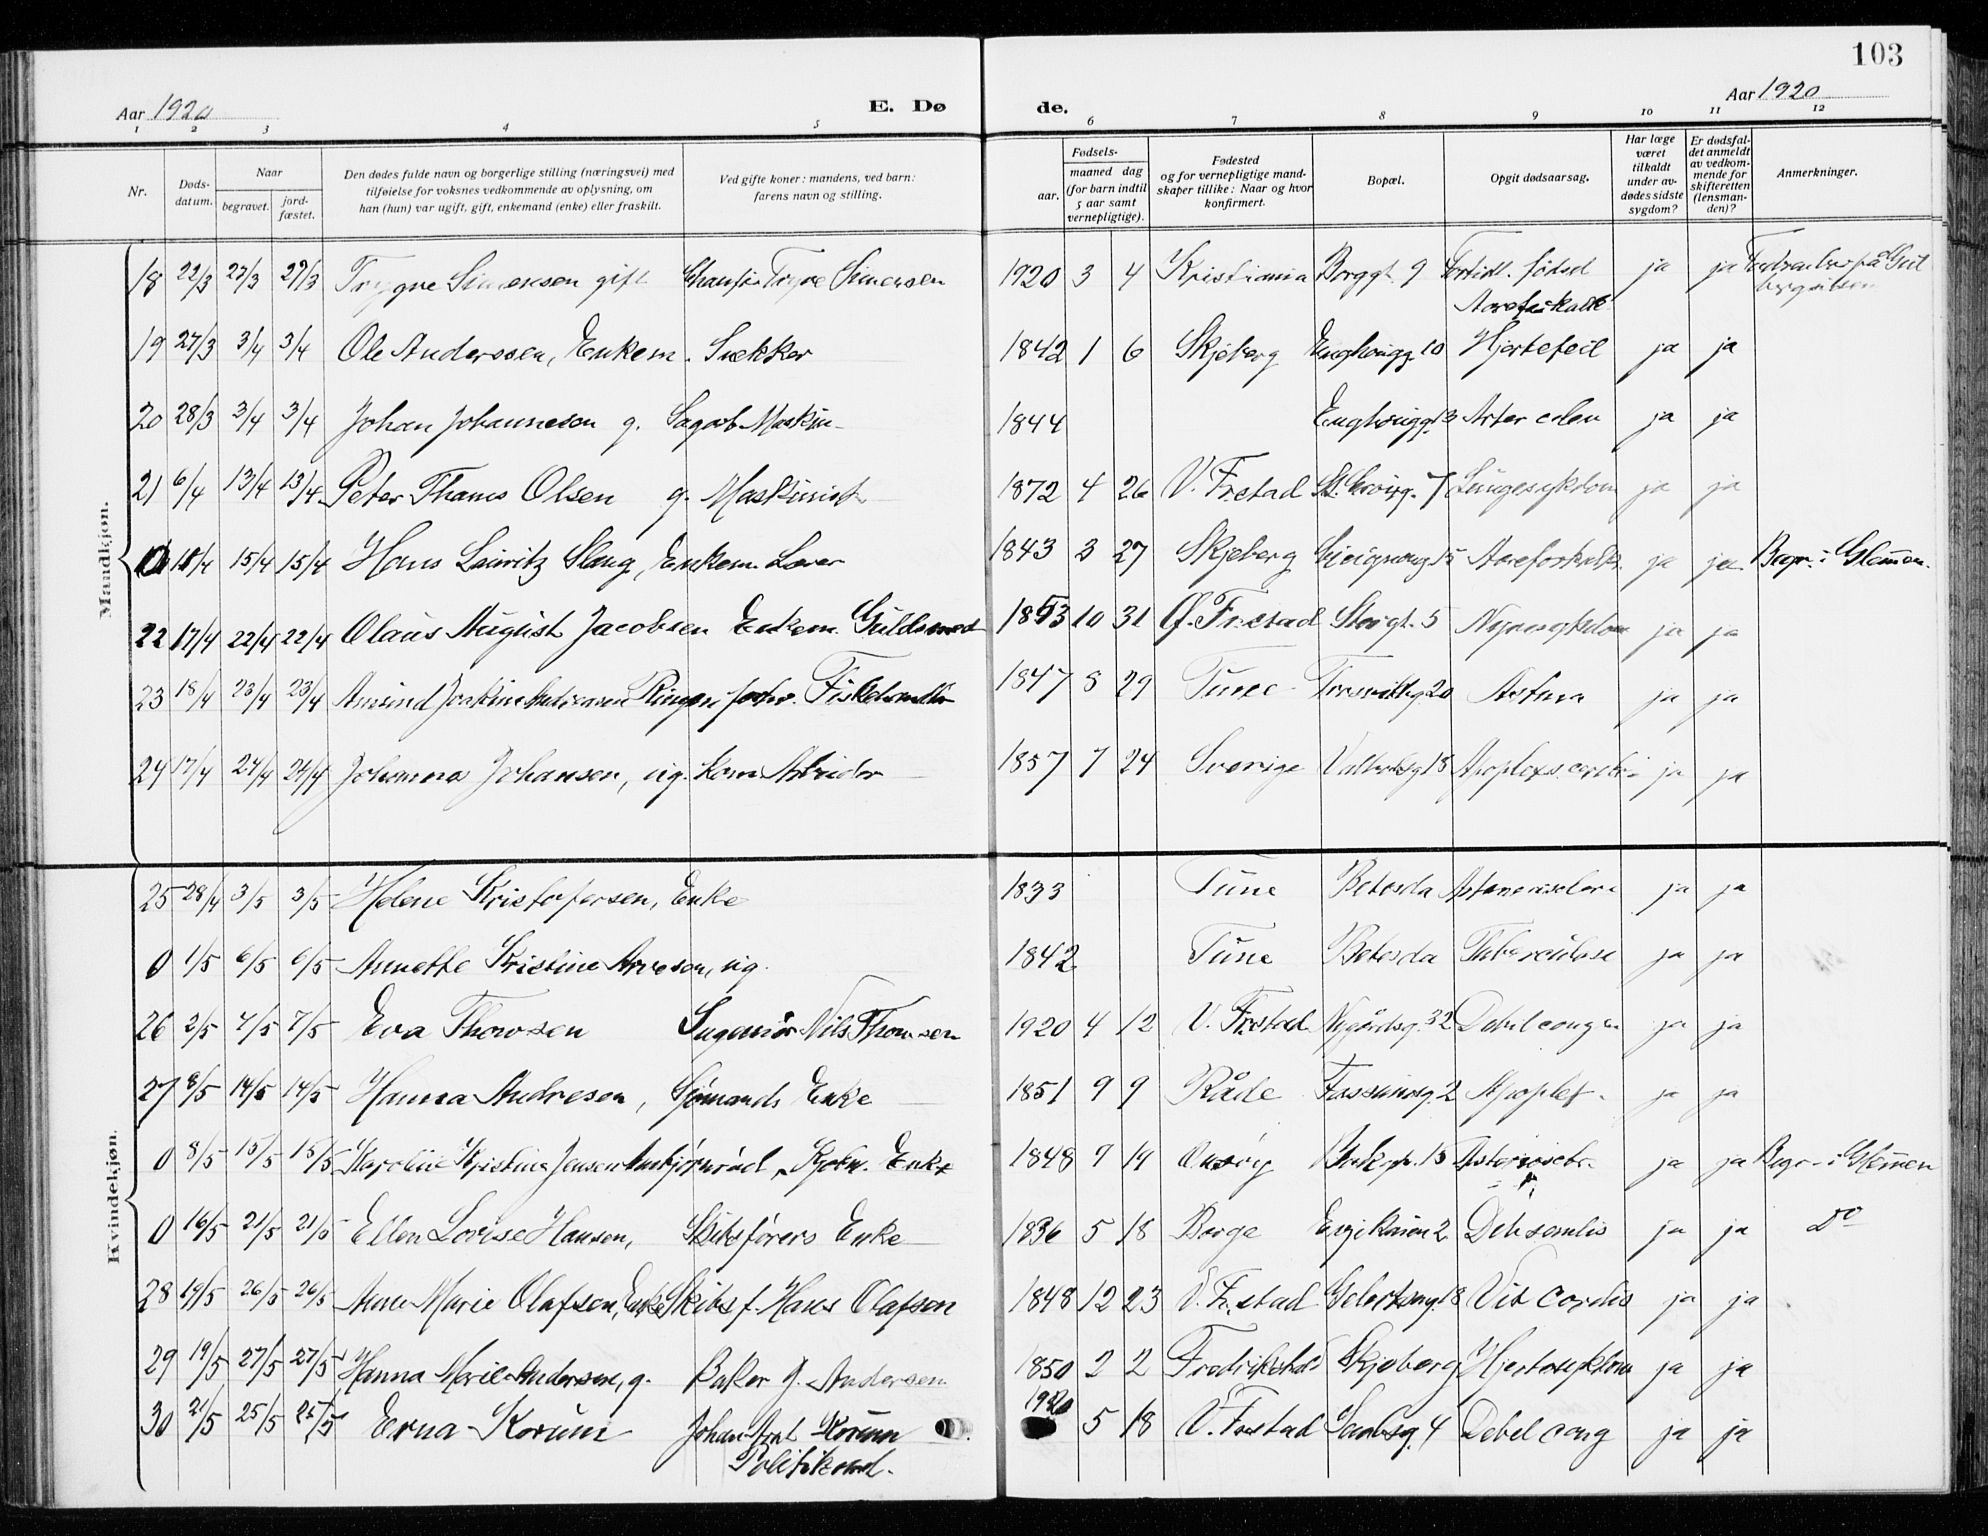 103
Aar 1920 E. Dø de. Aar 1920
1 2 3 4 5 6 7 8 9 10 11 12
Nr. Døds-datum. Naar begravet. jord-fæstet. Den dødes fulde navn og borgerlige stilling (næringsvei) med tilføielse for voksnes vedkommende av oplysning, om han (hun) var ugift, gift, enkemand (enke) eller fraskilt. Ved gifte koner: mandens, ved barn: farens navn og stilling. Fødsels- aar. maaned dag (for barn indtil 5 aar samt vernepligtige). Fødested og for vernepligtige mand-skaper tillike: Naar og hvor konfirmert. Bopæl. Opgit dødsaarsag. Har læge været tilkaldt under av-dødes sidste sygdom? Er dødsfal-det anmeldt av vedkom-mende for skifteretten (lensman-den)? Anmerkninger.
Mandkjøn.
18 22/3 27/3 27/3 Trygve Simensen gift Chauffør Trygve Simensen 1920 3 4 Kristiania Borggt. 9 Fortidl. født ja ja
19 27/3 3/4 3/4 Ole Anderssen, Enkem. Snekker 1842 1 6 Skjeberg Enghaugg. 10 Hjertefeil ja ja
20 28/3 3/4 3/4 Johan Johannesen g. Sagarb. Maskin- 1844 Enghaugg. 13 Arter ja ja
21 6/4 13/4 13/4 Peter Thams Olsen g. Maskinist 1872 4 26 V. Frstad 7 Lungesykdom ja ja
0 11/4 15/4 15/4 Hans Lauritz Slang, Enkem. Lærer 1843 3 27 Skjeberg 15 Aareforkalk. ja ja Begr. i Glemmen.
22 17/4 22/4 22/4 Olaus August Jacobsen Enkem. Guldsmed 1853 10 31 Ø. Frstad Storgt. 5 Nyresykdom ja ja
23 18/4 23/4 23/4 Amund Joakim Andreasen Ringen forhv. Fiskehandler 1847 8 29 Tune 20 Astma ja ja
24 17/4 24/4 24/4 Johannes Johansen, ug. kom. Arbeider 1857 7 24 Sverige 18 Apoplexs. cerebri ja ja
Kvindekjøn.
25 28/4 3/5 3/5 Helene Kristofersen, Enke 1833 Tune Betesda ja ja
0 1/5 6/5 6/5 Annette Kristine Arnesen, ug. 1842 Tune Betesda Tuberculose ja ja
26 2/5 7/5 7/5 Eva Thowsen Ingeniør Nils Thowsen 1920 4 12 V. Frstad Nygårdsg. 32 Debil congen ja ja
27 8/5 14/5 14/5 Hanna Andresen, Sjømands Enke 1851 9 9 Råde 2 Apoplex. ja ja
0 8/5 15/5 15/5 Karoline Kristine Jensen Ambjørnrød, Enke 1848 7 19 Onsøy 15 ja ja Begr. i Glemmen
0 16/5 21/5 21/5 Ellen Lovise Hansen, Skibsførers Enke 1836 5 18 Borge 2 Deb. senilis ja ja Do
28 19/5 26/5 26/5 Anne Marie Olafsen, Enke Skibsf. Hans Olafsen 1848 12 23 V. Frstad 18 Vit. cordis ja ja
29 19/5 27/5 27/5 Hanna Marie Andersen, g. Baker J. Andersen 1850 2 2 Fredrikstad Skjeberg Hjertesykdom ja ja
30 21/5 25/5 25/5 Erna Korum Johan Korum 1920 5 18 V. Frstad 4 Debil cong ja ja